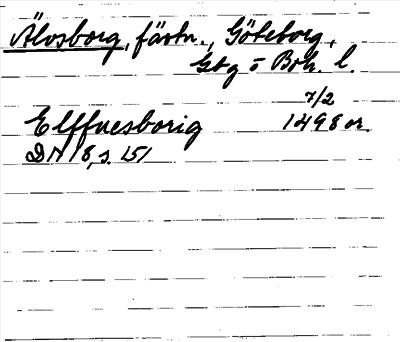 Älvsborg, fästn., Göteborg,
Gbg o Boh. l.
7/2
Elffuesborig 1498 or.
DN 18, s. 151